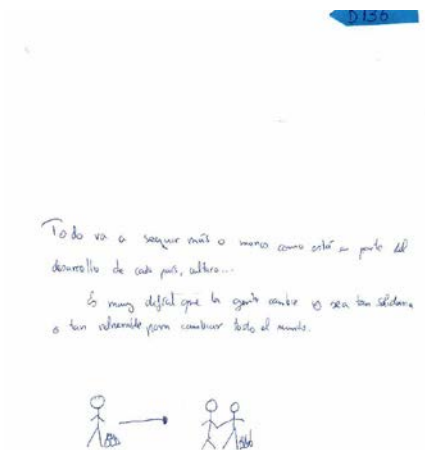 D.136
Todo va a seguir más o menos como está en parte del
desarrollo de cada país, cultura...
Es muy difícil que la gente cambie o sea tan solidaria
o tan vulnerable para cambiar todo el mundo.